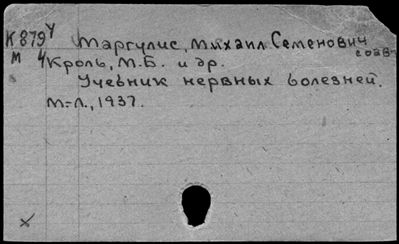 К879у Маргулис, Михаил Семенович соав
М 4 Кроль, М.Б. и др.
Учебник нервных болезней.
М.-Л., 1937.
х